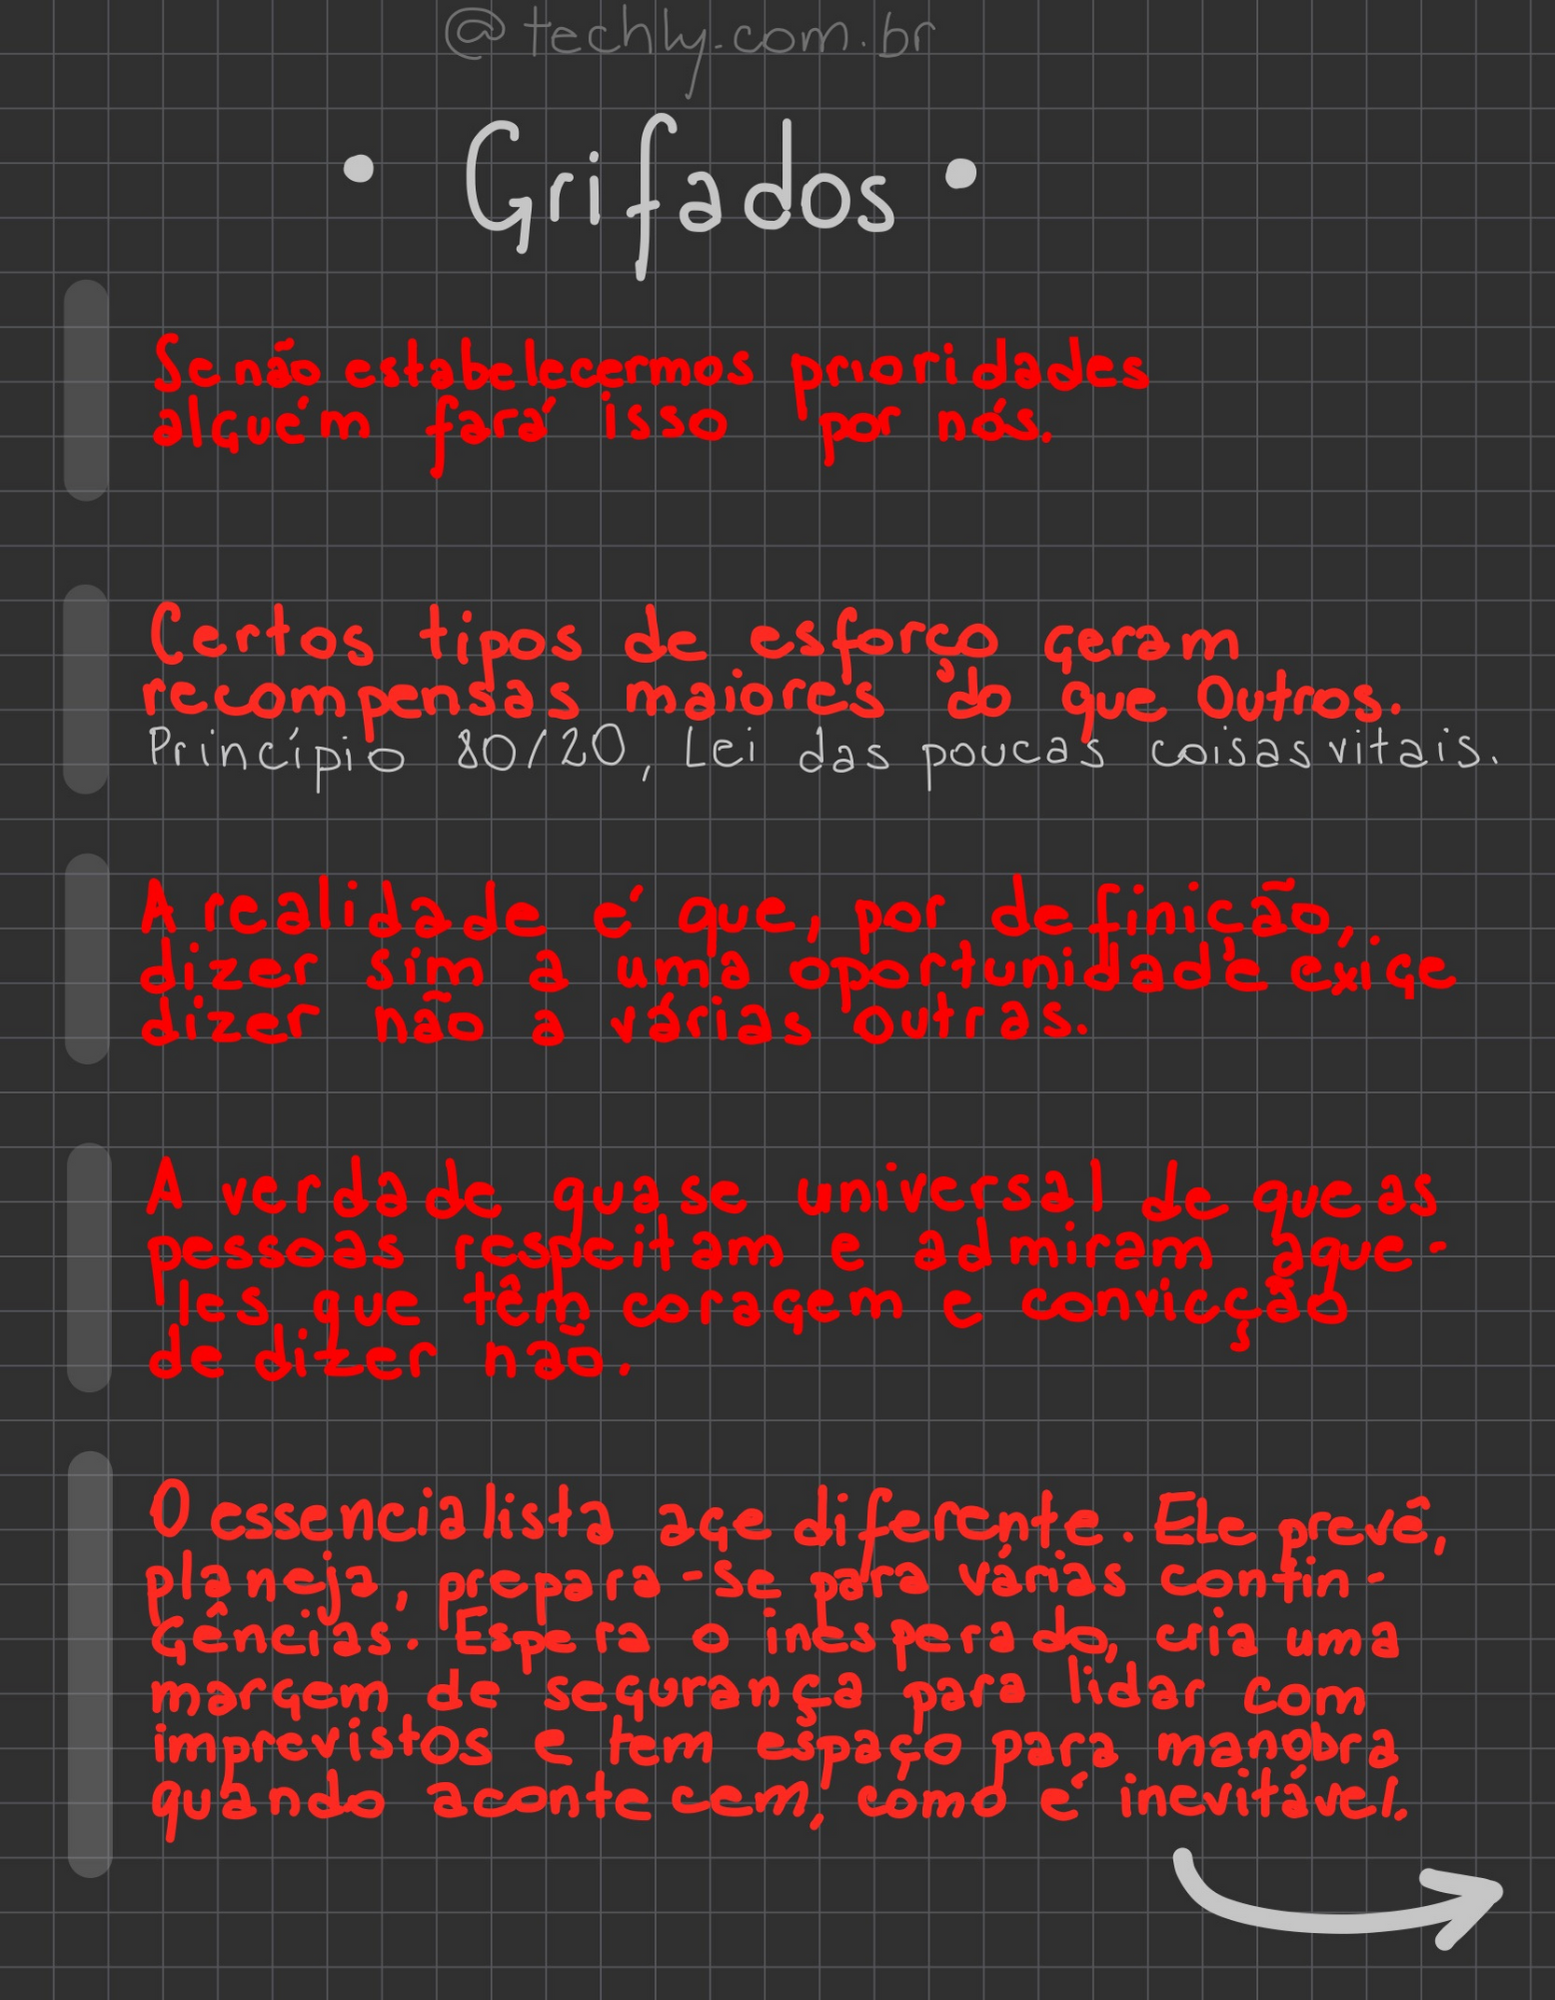 @techly.com.br
• Grifados •
Se não estabelecermos prioridades
alguém fará isso por nós.
Certos tipos de esforço geram
recompensas maiores do que outros.
Princípio 80/20, Lei das poucas coisas vitais.
A realidade é que, por definição,
dizer sim a uma oportunidade exige
dizer não a várias outras.
A verdade quase universal de que as
pessoas respeitam e admiram aque-
les que têm coragem e convicção
de dizer não.
O essencialista age diferente. Ele prevê,
planeja, prepara-se para várias contin-
gências. Espera o inesperado, cria uma
margem de segurança para lidar com
imprevistos e tem espaço para manobra
quando acontecem, como é inevitável.